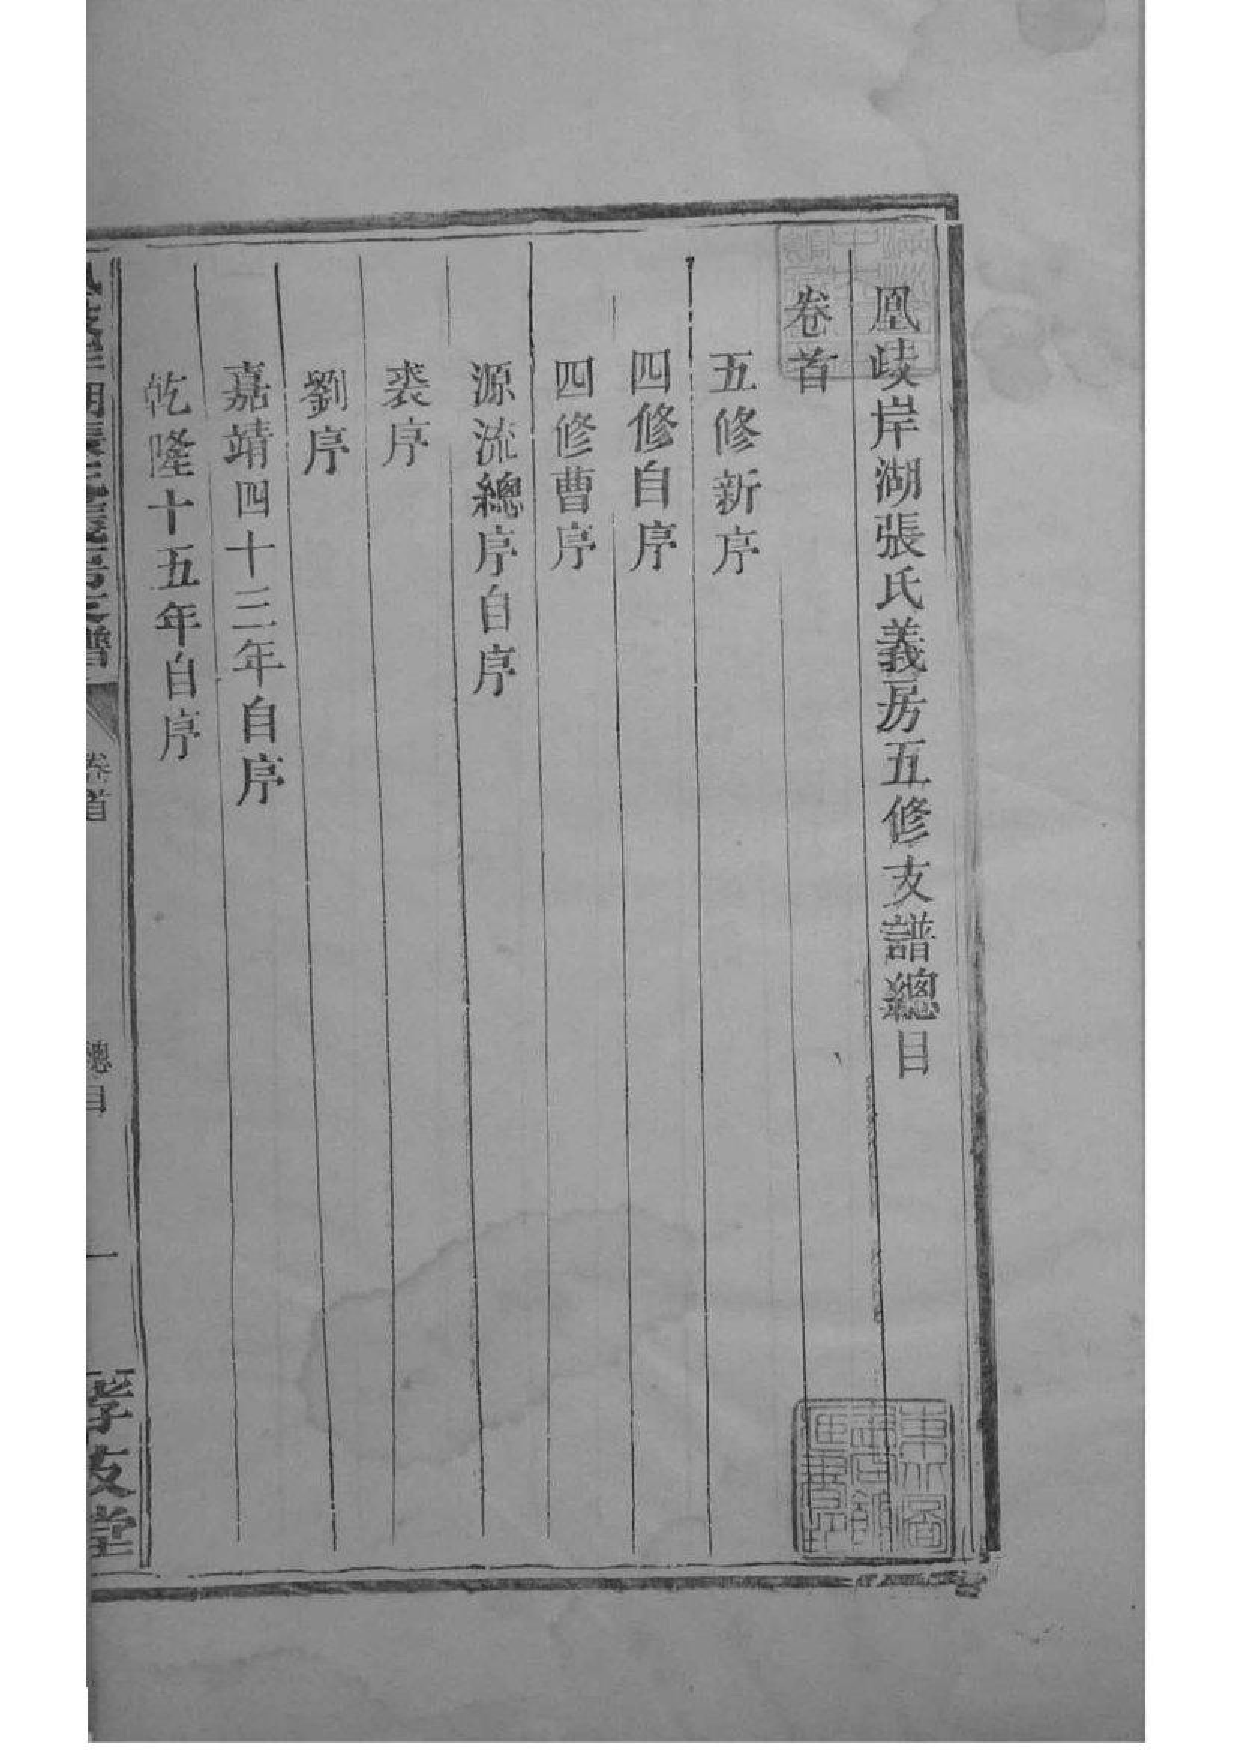 凰歧岸湖張氏義房五修支譜總目
卷首
五修新序
四修自序
四修曹序
源流總序自序
裘序
劉序
嘉靖四十三年自序
乾隆十五年自序
湖張氏義房支譜
卷首
總目
一
孝友堂